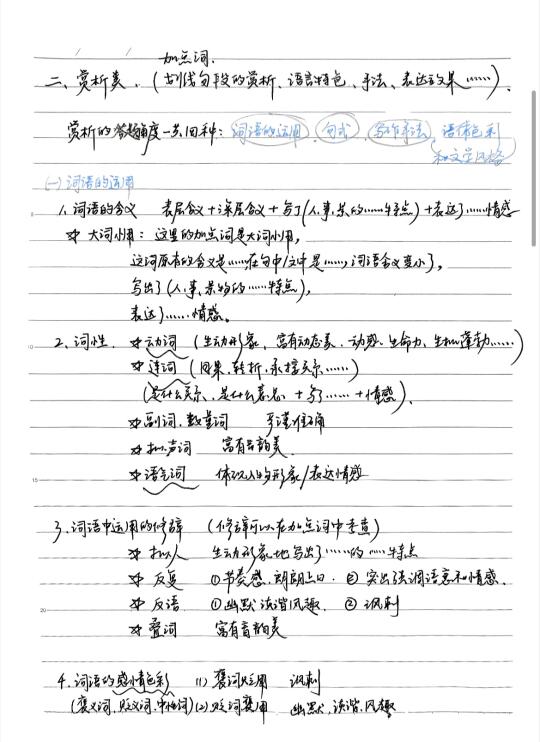 加点词.
二、赏析类.（划线句段的赏析、语言特色、手法、表达效果……）.
赏析的答题角度一共四种：词语的运用、句式、写作手法、语体色彩
和文学风格
(一) 词语的运用
1. 词语的含义 表层含义+深层含义+写了(人.事.景的……特点)+表达了……情感
☆ 大词小用：这里的加点词是大词小用,
这词原本的含义是……在句中/文中是……, 词语含义变小了,
写出了(人.事.景物的……特点),
表达了……情感。
2. 词性. ☆动词 (生动形象、富有动态美、动感、生命力、生机蓬勃……)
☆连词 (因果、转折、承接关系……)
(是什么关系、是什么意思 + 写了…… + 情感).
☆副词、数量词 严谨准确
☆拟声词 富有音韵美
☆语气词 体现人的形象/表达情感
3. 词语中运用的修辞 (修辞可以在加点词中考查)
☆ 拟人 生动形象地写出了……的……特点
☆ 反复 ①节奏感、朗朗上口. ②突出强调语意和情感.
☆ 反语 ①幽默诙谐风趣. ②讽刺
☆ 叠词 富有音韵美
4. 词语的感情色彩 (1) 褒词贬用 讽刺
(褒义词、贬义词、中性词) (2) 贬词褒用 幽默、诙谐、风趣